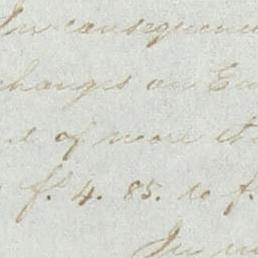 In consequence
changes on En
of more th
f. 4. 85. to f.
In